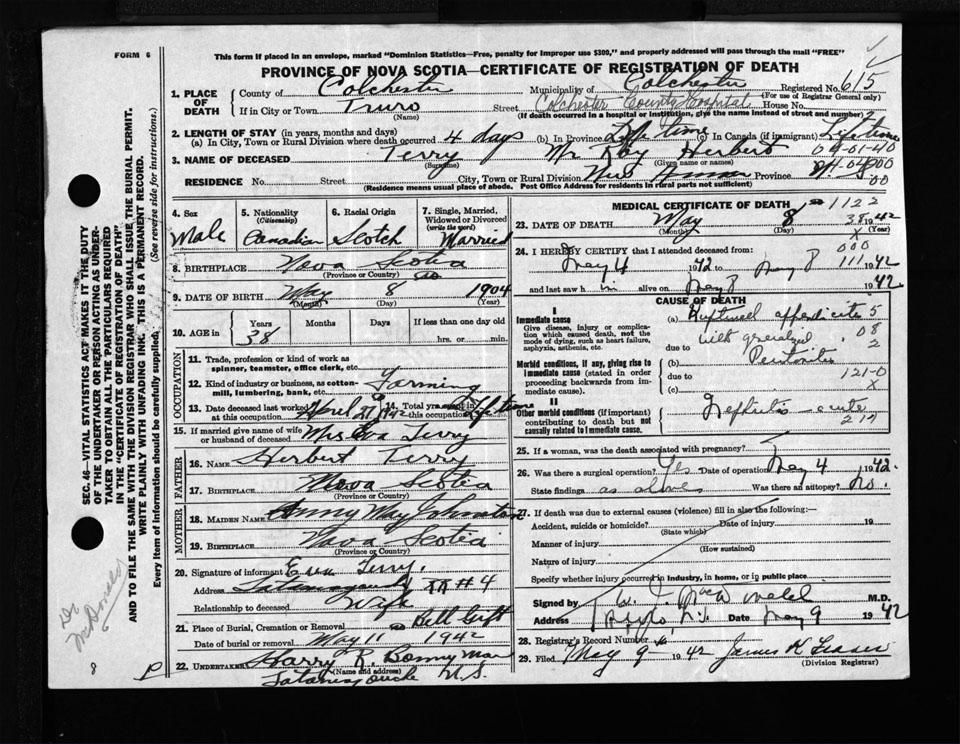 FORM 6
This form if placed in an envelope, marked "Dominion Statistics—Free, penalty for improper use $300," and properly addressed will pass through the mail "FREE"
PROVINCE OF NOVA SCOTIA—CERTIFICATE OF REGISTRATION OF DEATH
Registered No. 615
(For use of Registrar General only)
1. PLACE OF DEATH
County of Colchester
Municipality of Colchester
If in City or Town Truro
(Name)
Street Colchester County Hospital House No.
(If death occurred in a hospital or institution, give the name instead of street and number)
2. LENGTH OF STAY (in years, months and days)
(a) In City, Town or Rural Division where death occurred 4 days (b) In Province Life time (c) In Canada (if immigrant) Lifetime
3. NAME OF DECEASED Terry Mr Roy Herbert
(Surname) (Given name or names)
04-01-40
RESIDENCE No. Street City, Town or Rural Division New Annan Province N.S.
(Residence means usual place of abode. Post Office Address for residents in rural parts not sufficient)
4. Sex Male
5. Nationality (Citizenship) Canadian
6. Racial Origin Scotch
7. Single, Married, Widowed or Divorced (write the word) Married
8. BIRTHPLACE Nova Scotia
(Province or Country)
9. DATE OF BIRTH May 8 1904
(Month) (Day) (Year)
10. AGE in Years 38 Months Days If less than one day old hrs. or min.
OCCUPATION
11. Trade, profession or kind of work as spinner, teamster, office clerk, etc.
12. Kind of industry or business, as cotton-mill, lumbering, bank, etc. Farming
13. Date deceased last worked at this occupation April 1942 14. Total yrs. spent in this occupation Lifetime
15. If married give name of wife or husband of deceased Mrs Eva Terry
FATHER
16. Name Herbert Terry
17. Birthplace Nova Scotia
(Province or Country)
MOTHER
18. Maiden Name Anny May Johnston
19. Birthplace Nova Scotia
(Province or Country)
20. Signature of informant Eva Terry.
Address Tatamagouche RR #4
Relationship to deceased Wife
21. Place of Burial, Cremation or Removal Bell Gift
Date of burial or removal May 11 1942
22. UNDERTAKER Harry R. Bonnyman
(Name and address)
Tatamagouche N.S.
MEDICAL CERTIFICATE OF DEATH
1122
23. DATE OF DEATH May 8 1942
(Month) (Day) (Year)
38
X
24. I HEREBY CERTIFY that I attended deceased from:
May 4 1942 to May 8 1942
000
111
and last saw h im alive on May 8 1942
CAUSE OF DEATH
I
Immediate cause
Give disease, injury or complication which caused death, not the mode of dying, such as heart failure, asphyxia, asthenia, etc.
(a) Ruptured appendicitis 5
due to with generalized
08
2
Morbid conditions, if any, giving rise to immediate cause (stated in order proceeding backwards from immediate cause).
(b) Peritonitis
due to 121-0
(c) X
II
Other morbid conditions (if important) contributing to death but not causally related to immediate cause.
Nephritis - acute
217
25. If a woman, was the death associated with pregnancy?
26. Was there a surgical operation? Yes Date of operation May 4 1942.
State findings as above Was there an autopsy? no.
27. If death was due to external causes (violence) fill in also the following:—
Accident, suicide or homicide? Date of injury 19
(State which)
Manner of injury
(How sustained)
Nature of injury
Specify whether injury occurred in industry, in home, or in public place
Signed by M.D.
Address Truro N.S. Date May 9 1942
28. Registrar's Record Number
29. Filed May 9 1942 James K Fraser
(Division Registrar)
SEC. 46—VITAL STATISTICS ACT MAKES IT THE DUTY OF THE UNDERTAKER OR PERSON ACTING AS UNDERTAKER TO OBTAIN ALL THE PARTICULARS REQUIRED IN THE "CERTIFICATE OF REGISTRATION OF DEATH" AND TO FILE THE SAME WITH THE DIVISION REGISTRAR WHO SHALL ISSUE THE BURIAL PERMIT.
WRITE PLAINLY WITH UNFADING INK. THIS IS A PERMANENT RECORD.
Every item of Information should be carefully supplied. (See reverse side for instructions.)
Dr. McDonald
8